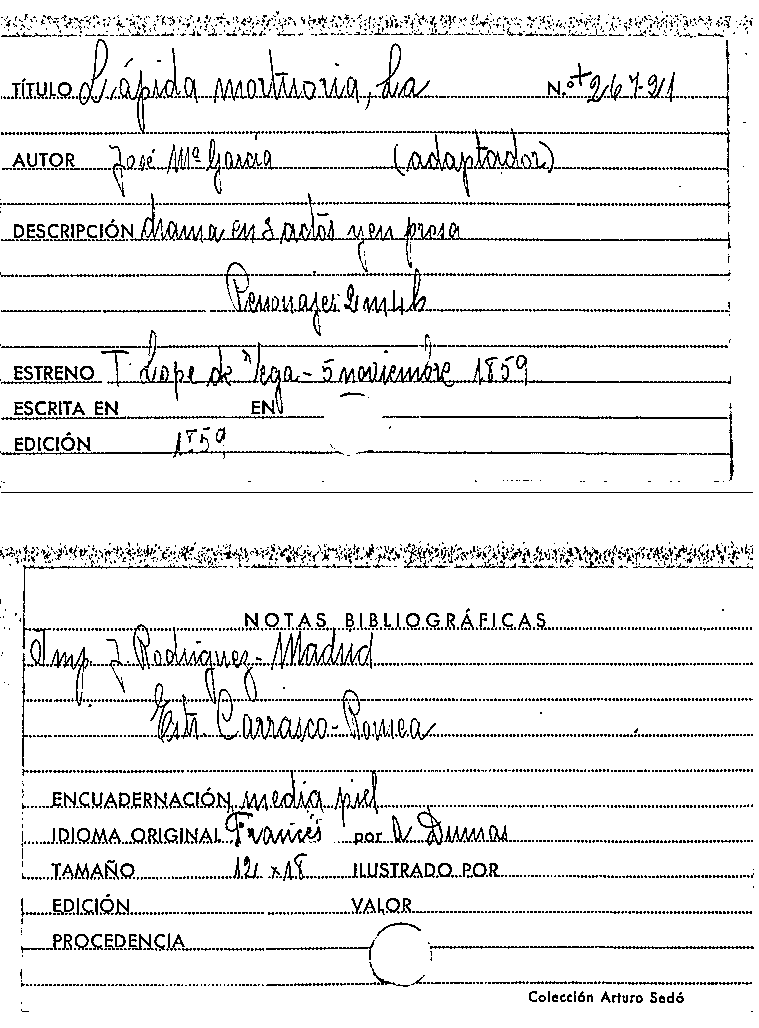 TÍTULO Lápida mortuoria, La N.º + 267-21
AUTOR José Mª García (adaptador)
DESCRIPCIÓN drama en 3 actos y en prosa
Personajes 2 m 4 h
ESTRENO T. Lope de Vega - 5 noviembre 1859
ESCRITA EN EN
EDICIÓN 1859
NOTAS BIBLIOGRÁFICAS
Imp. J Rodriguez - Madrid
Estr. Carrasco - Romea
ENCUADERNACIÓN media piel
IDIOMA ORIGINAL Francés por A Dumas
TAMAÑO 12 x 18 ILUSTRADO POR
EDICIÓN VALOR
PROCEDENCIA
Colección Arturo Sedó